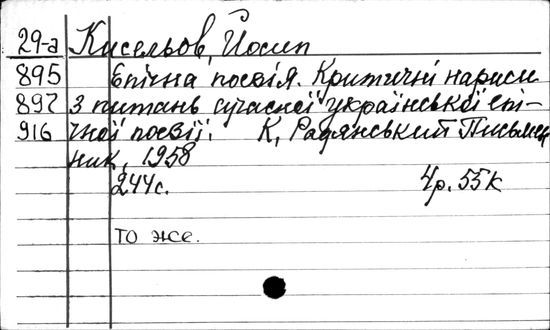 29-а Кисельов, Йосип
895 Епічна поезія. Критичні нариси
897 з питань сучасної української епі-
916 чної поезії. К, Радянський Письмен
ник, 1958
244с. 4р. 55к
то же.